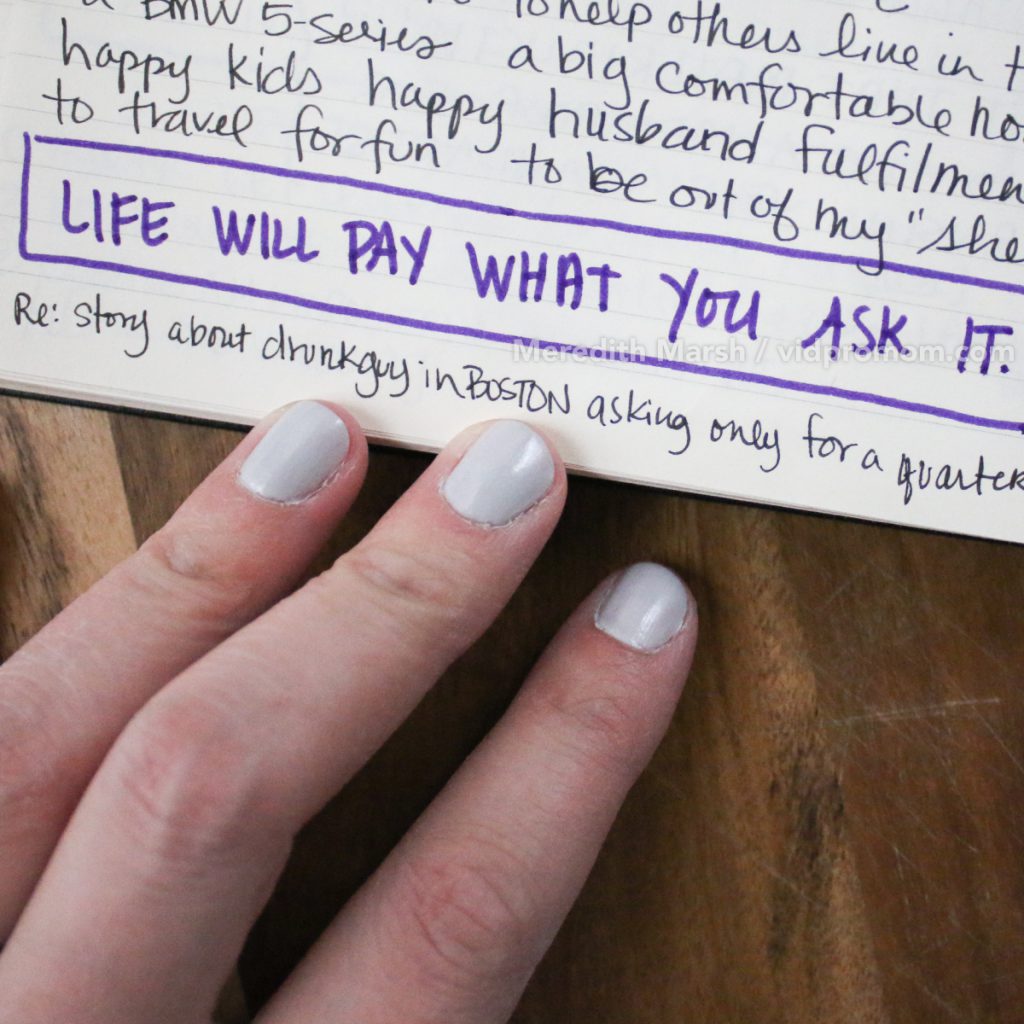 a BMW 5-series to help others live in
happy kids a big comfortable
to travel for fun happy husband fulfilmen
to be out of my "she
LIFE WILL PAY WHAT YOU ASK IT.
Re: Story about drunk guy in BOSTON asking only for a quarter
Meredith Marsh / vidpromom.com